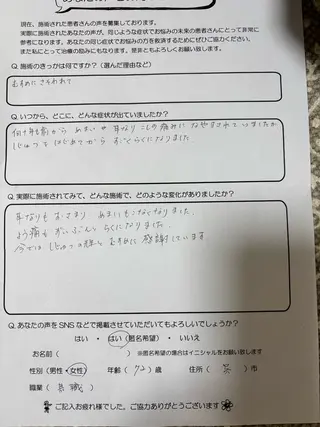 現在、施術された患者さんの声を募集しております。
実際に施術されたあなたの声が、同じような症状でお悩みの未来の患者さんにとって非常に
参考になります。あなたの同じ症状でお悩みの方を救済するためにぜひご協力ください。
また私にとって治療の励みにもなります。是非ともよろしくお願い致します。
Q. 施術のきっかけは何ですか?(選んだ理由など)
むすめにさそわれて
Q. いつから、どこに、どんな症状が出ていましたか?
何十年も前から めまいや耳なり こしの痛みに なやまされていましたが
しじゅつを はじめてから すごくらくになりました
Q. 実際に施術されてみて、どんな施術で、どのような変化がありましたか?
耳なりも おさまり めまいもこなくなりました。
よう痛も ずいぶんと らくになりました。
今では しじゅつの先生と むすめに 感謝しています
Q. あなたの声をSNSなどで掲載させていただいてもよろしいでしょうか?
はい ・ はい(匿名希望) ・ いいえ
お名前( ※匿名希望の場合はイニシャルをお願い致します
性別(男性・女性) 年齢(72)歳 住所( )市
職業(無職)
ご記入お疲れ様でした。ご協力ありがとうございます